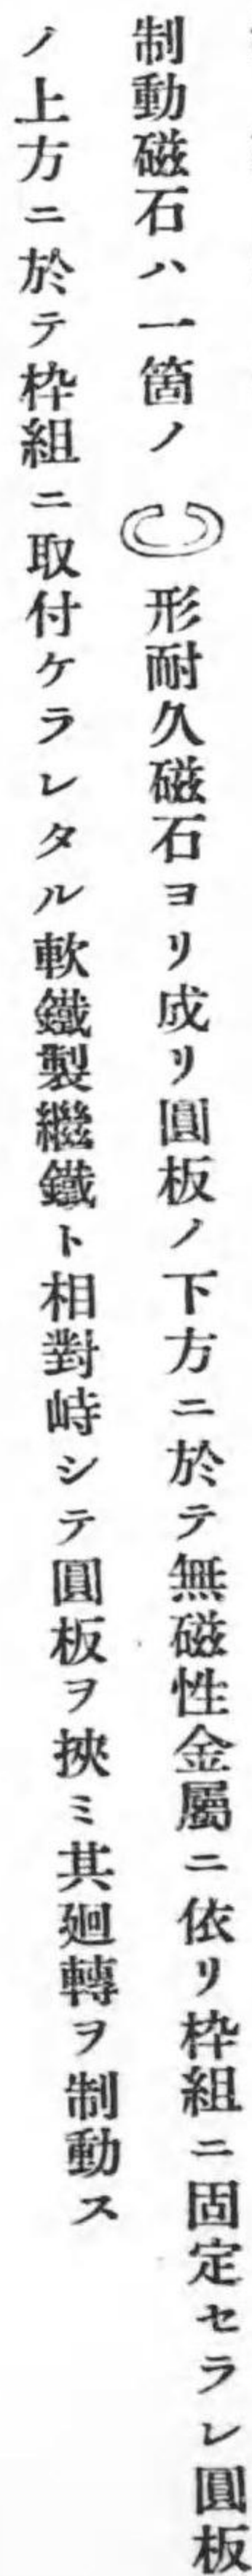 制動磁石ハ一箇ノ形耐久磁石ヨリ成リ圓板ノ下方ニ於テ無磁性金屬ニ依リ枠組ニ固定セラレ圓板
ノ上方ニ於テ枠組ニ取付ケラレタル軟鐵製繼鐵ト相對峙シテ圓板ヲ挾ミ其廻轉ヲ制動ス